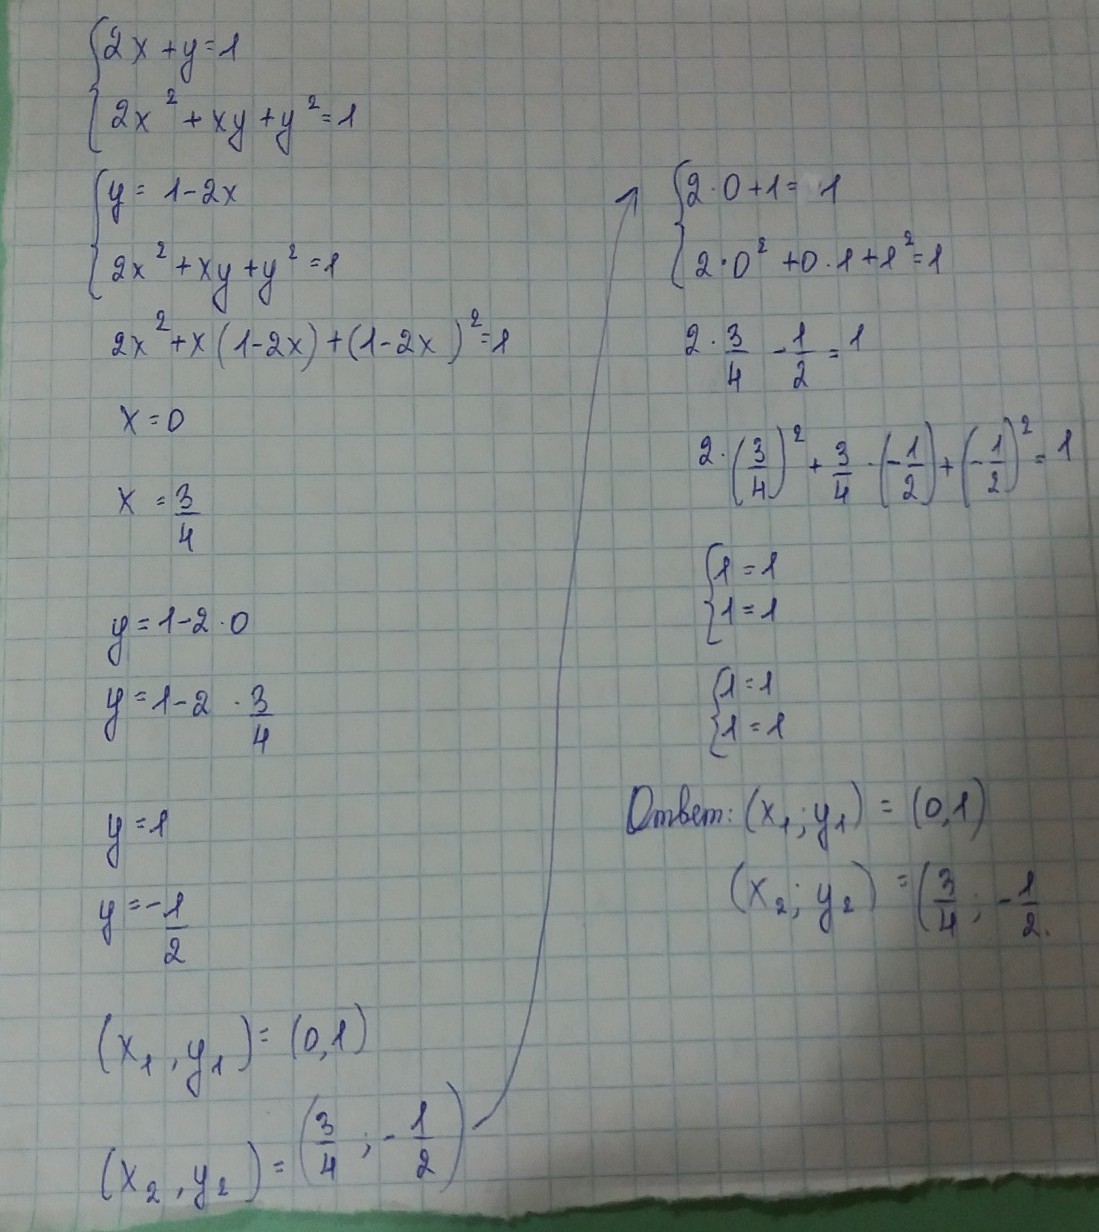 {2x + y = 1
{2x² + xy + y² = 1
{y = 1 - 2x
{2x² + xy + y² = 1
2x² + x(1 - 2x) + (1 - 2x)² = 1
x = 0
x = 3/4
y = 1 - 2 · 0
y = 1 - 2 · 3/4
y = 1
y = -1/2
(x₁, y₁) = (0,1)
(x₂, y₂) = (3/4; -1/2)
{2 · 0 + 1 = 1
{2 · 0² + 0 · 1 + 1² = 1
2 · 3/4 - 1/2 = 1
2 · (3/4)² + 3/4 · (-1/2) + (-1/2)² = 1
{1 = 1
{1 = 1
{1 = 1
{1 = 1
Ответ: (x₁; y₁) = (0,1)
(x₂; y₂) = (3/4; -1/2.